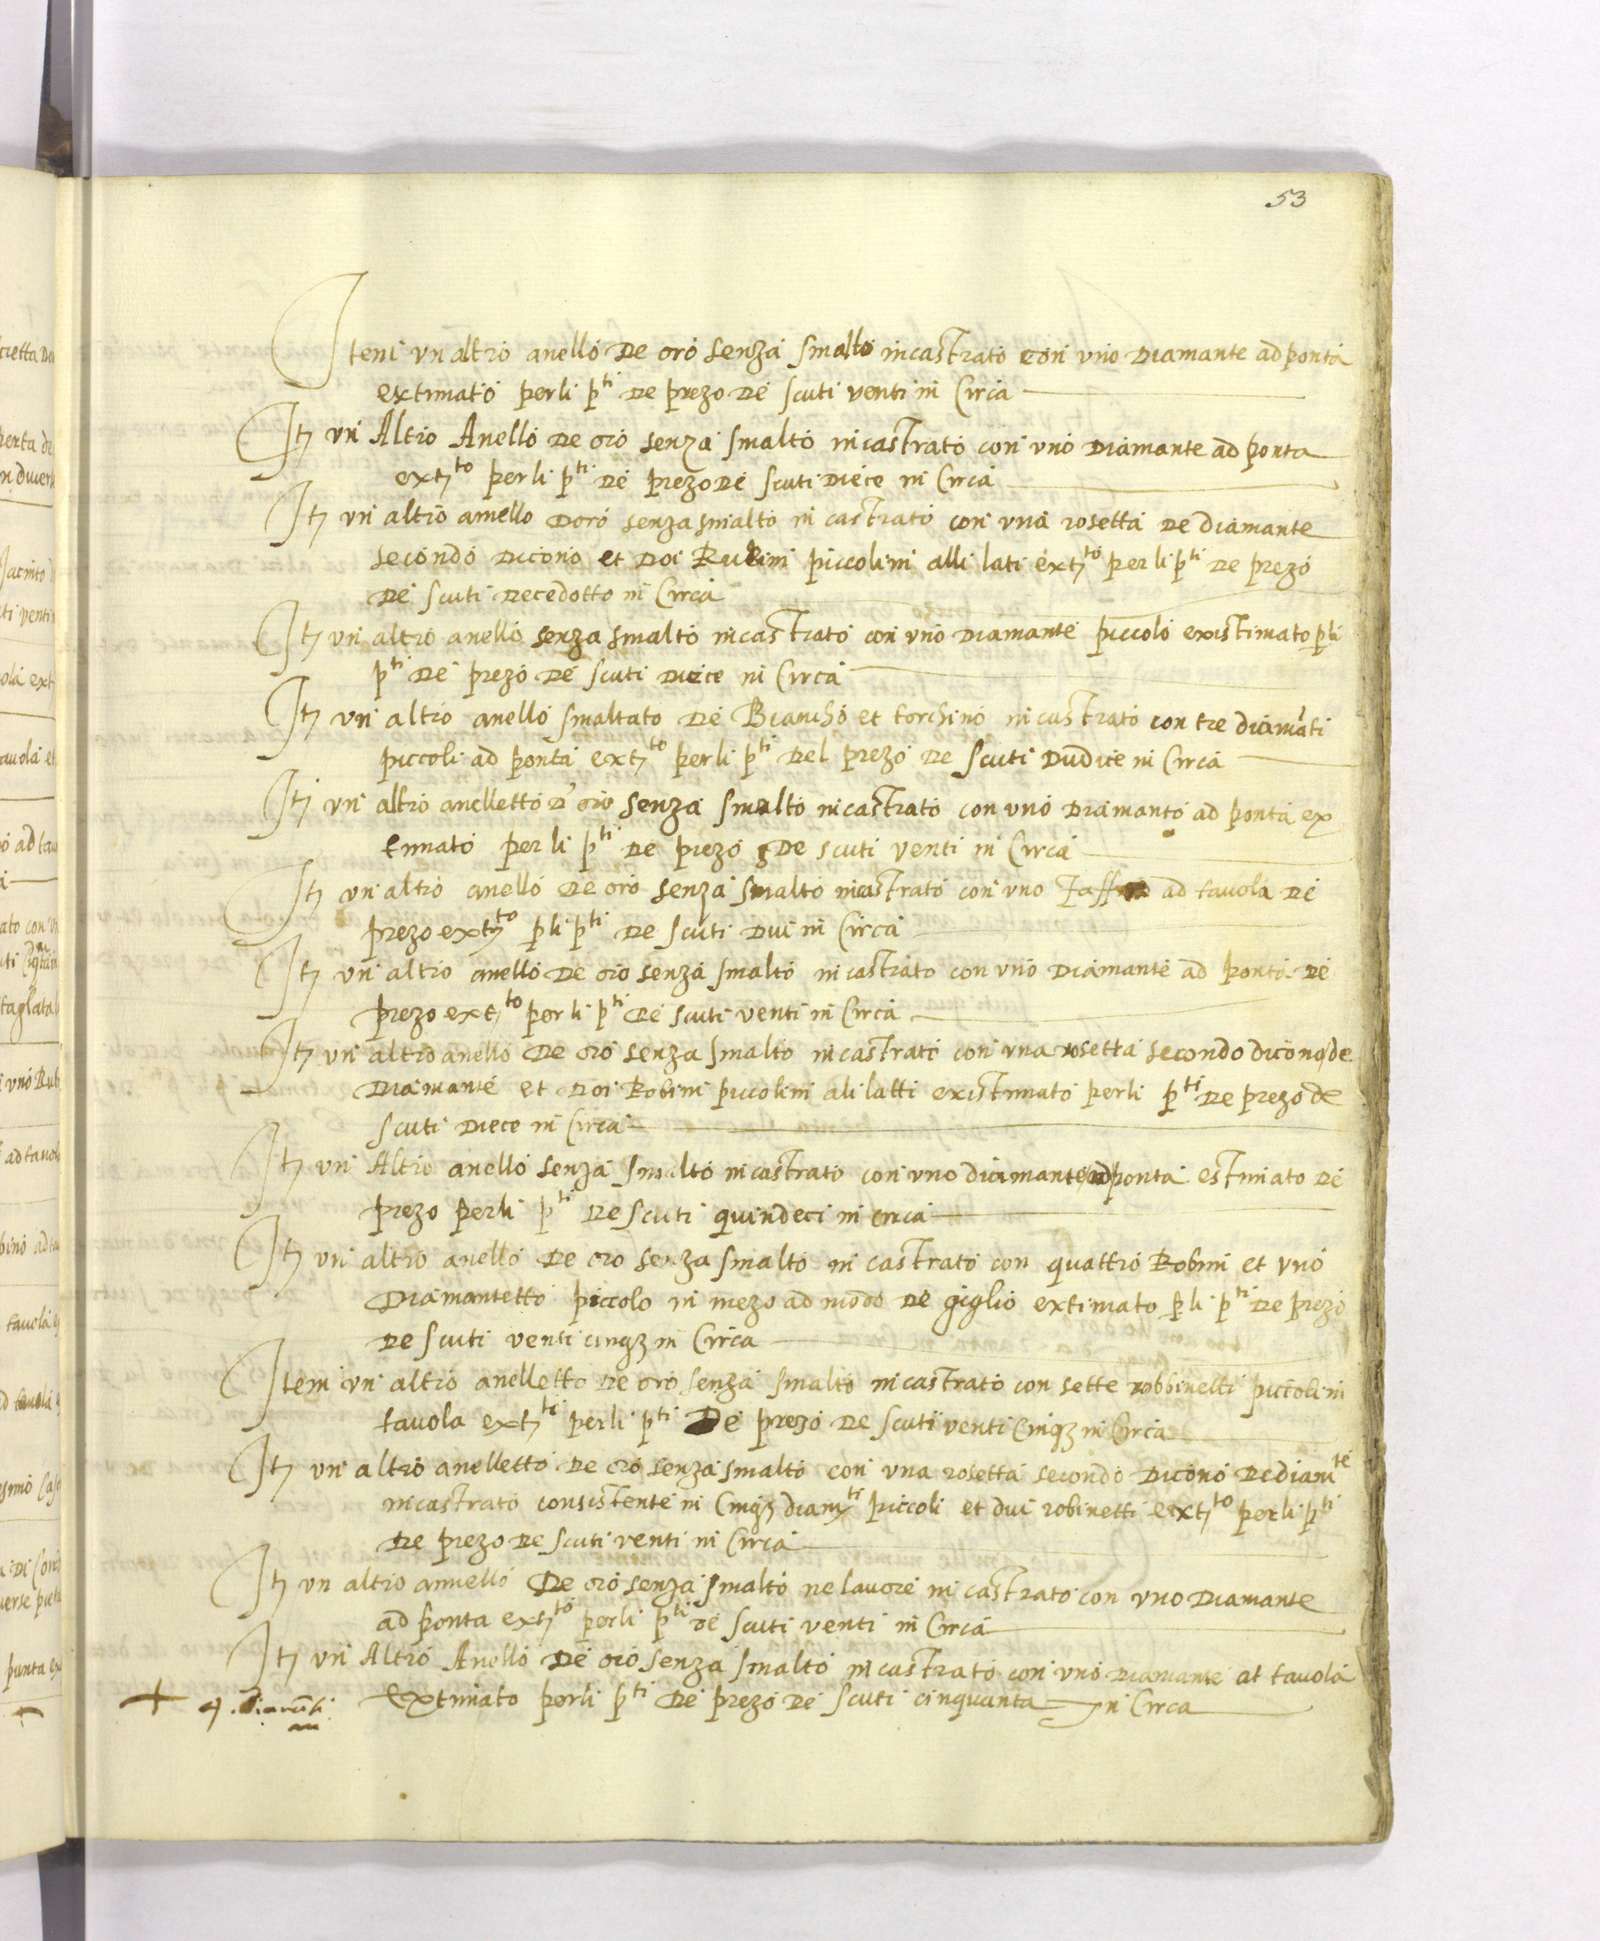 53
Item un altro anello de oro senza smalto incastrato con uno diamante ad ponta
extimato per li p^ti de prezo de scuti venti in circa
It un Altro Anello de oro senza smalto incastrato con uno diamante ad ponta
ext^to per li p^ti de prezo de scuti diece in circa
It un altro anello doro senza smalto incastrato con una rosetta de diamante
secondo dicono et doi Rubini piccolini alli lati ext^to per li p^ti de prezo
de scuti decedotto in circa
It un altro anello senza smalto incastrato con uno diamante piccolo existimato p li
p^ti de prezo de scuti diece in circa
It un altro anello smaltato de Biancho et torchino incastrato con tre diamãti
piccoli ad ponta ext^to per li p^ti del prezo de scuti dudice in circa
It un altro anelletto d'oro senza smalto incastrato con uno diamanto ad ponta ex
timato per li p^ti de prezo de scuti venti in circa
It un altro anello de oro senza smalto incastrato con uno ad tavola de
prezo ext^to p li p^ti de scuti dui in circa
It un altro anello de oro senza smalto incastrato con uno diamante ad ponta de
prezo ext^to per li p^ti de scuti venti in circa
It un altro anello de oro senza smalto incastrato con una rosetta secondo dicono de
diamante et doi Robini piccolini ali latti existimato per li p^ti de prezo de
scuti diece in circa
It un Altro anello senza smalto incastrato con uno diamante ad ponta estimato de
prezo per li p^ti de scuti quindeci in circa
It un altro anello de oro senza smalto incastrato con quattro Robini et uno
diamantetto piccolo in mezo ad modo de giglio extimato p li p^ti de prezo
de scuti venti cinq3 in circa
Item un altro anelletto de oro senza smalto incastrato con sette robbinetti piccolini
tavola ext^ti per li p^ti De prezo de scuti venti cinq3 in circa
It un altro anelletto de oro senza smalto con una rosetta secondo dicono de diam^te
incastrato consistente in cinq3 diam^ti piccoli et dui robinetti ext^to per li p^ti
de prezo de scuti venti in circa
It un altro annello de oro senza smalto ne lavore incastrato con uno diamante
ad ponta ext^to per li p^ti de scuti venti in circa
It un Altro Anello de oro senza smalto incastrato con uno diamante at tavola
extimato per li p^ti de prezo de scuti cinquanta in circa